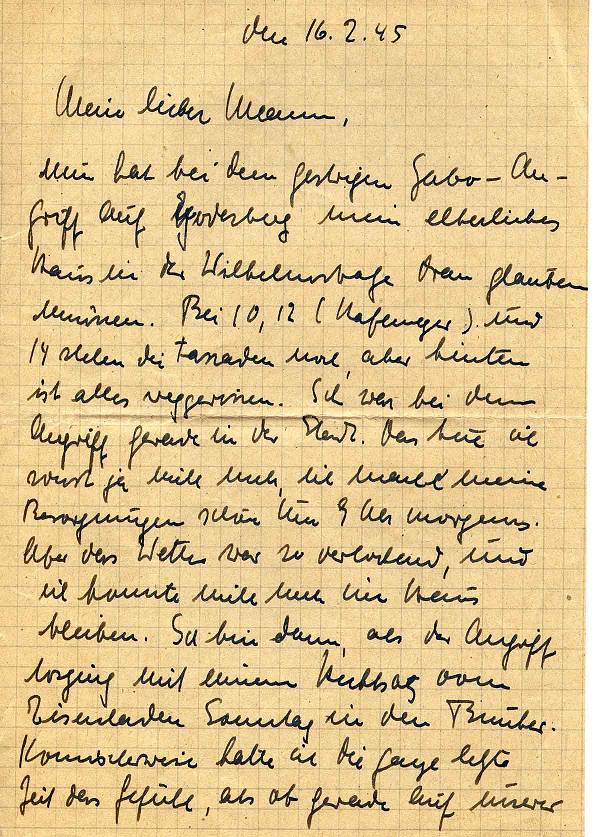 den 16.2.45
Mein lieber Mann,
Nun hat bei dem gestrigen Jabo-An-
griff auf Godesberg mein elterliches
Haus in der Wilhelmstraße dran glauben
müssen. Bei 10, 12 (Hafeneger) und
14 stehen die Fassaden noch, aber hinten
ist alles weggerissen. Ich war bei dem
Angriff gerade in der Stadt. Das tue ich
sonst ja nicht mehr, ich mache meine
Besorgungen schon um 9 Uhr morgens.
Aber das Wetter war so verlockend, und
ich konnte nicht mehr im Haus
bleiben. Ich bin dann, als der Angriff
losging mit einem vom
Eisenladen Sonntag in den Bunker.
Komischerweise hatte ich die ganze letzte
Zeit das Gefühl, als ob gerade auf unserer